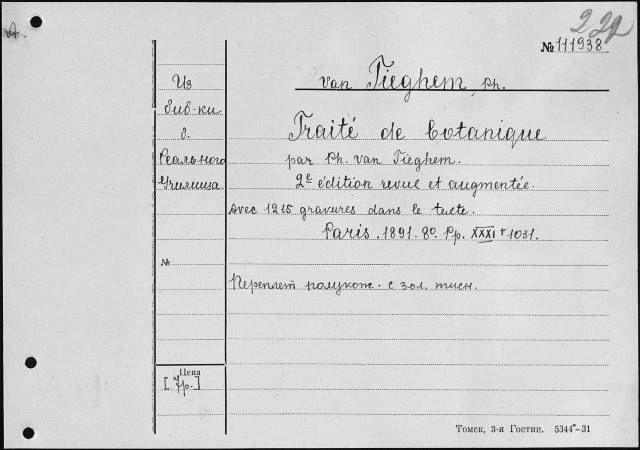 А.
222
№ 111938
van Tieghem, Ph.
Из
биб-ки
б.
Реального
Училища.
Traité de botanique
par Ph. van Tieghem.
2e édition revue et augmentée.
Avec 1215 gravures dans le texte.
Paris. 1891. 8o. Pp. XXXI + 1031.
№
Переплет полукож. с зол. тисн.
Цена
[7р.]
Томск, 3-я Гостип. 5344-31